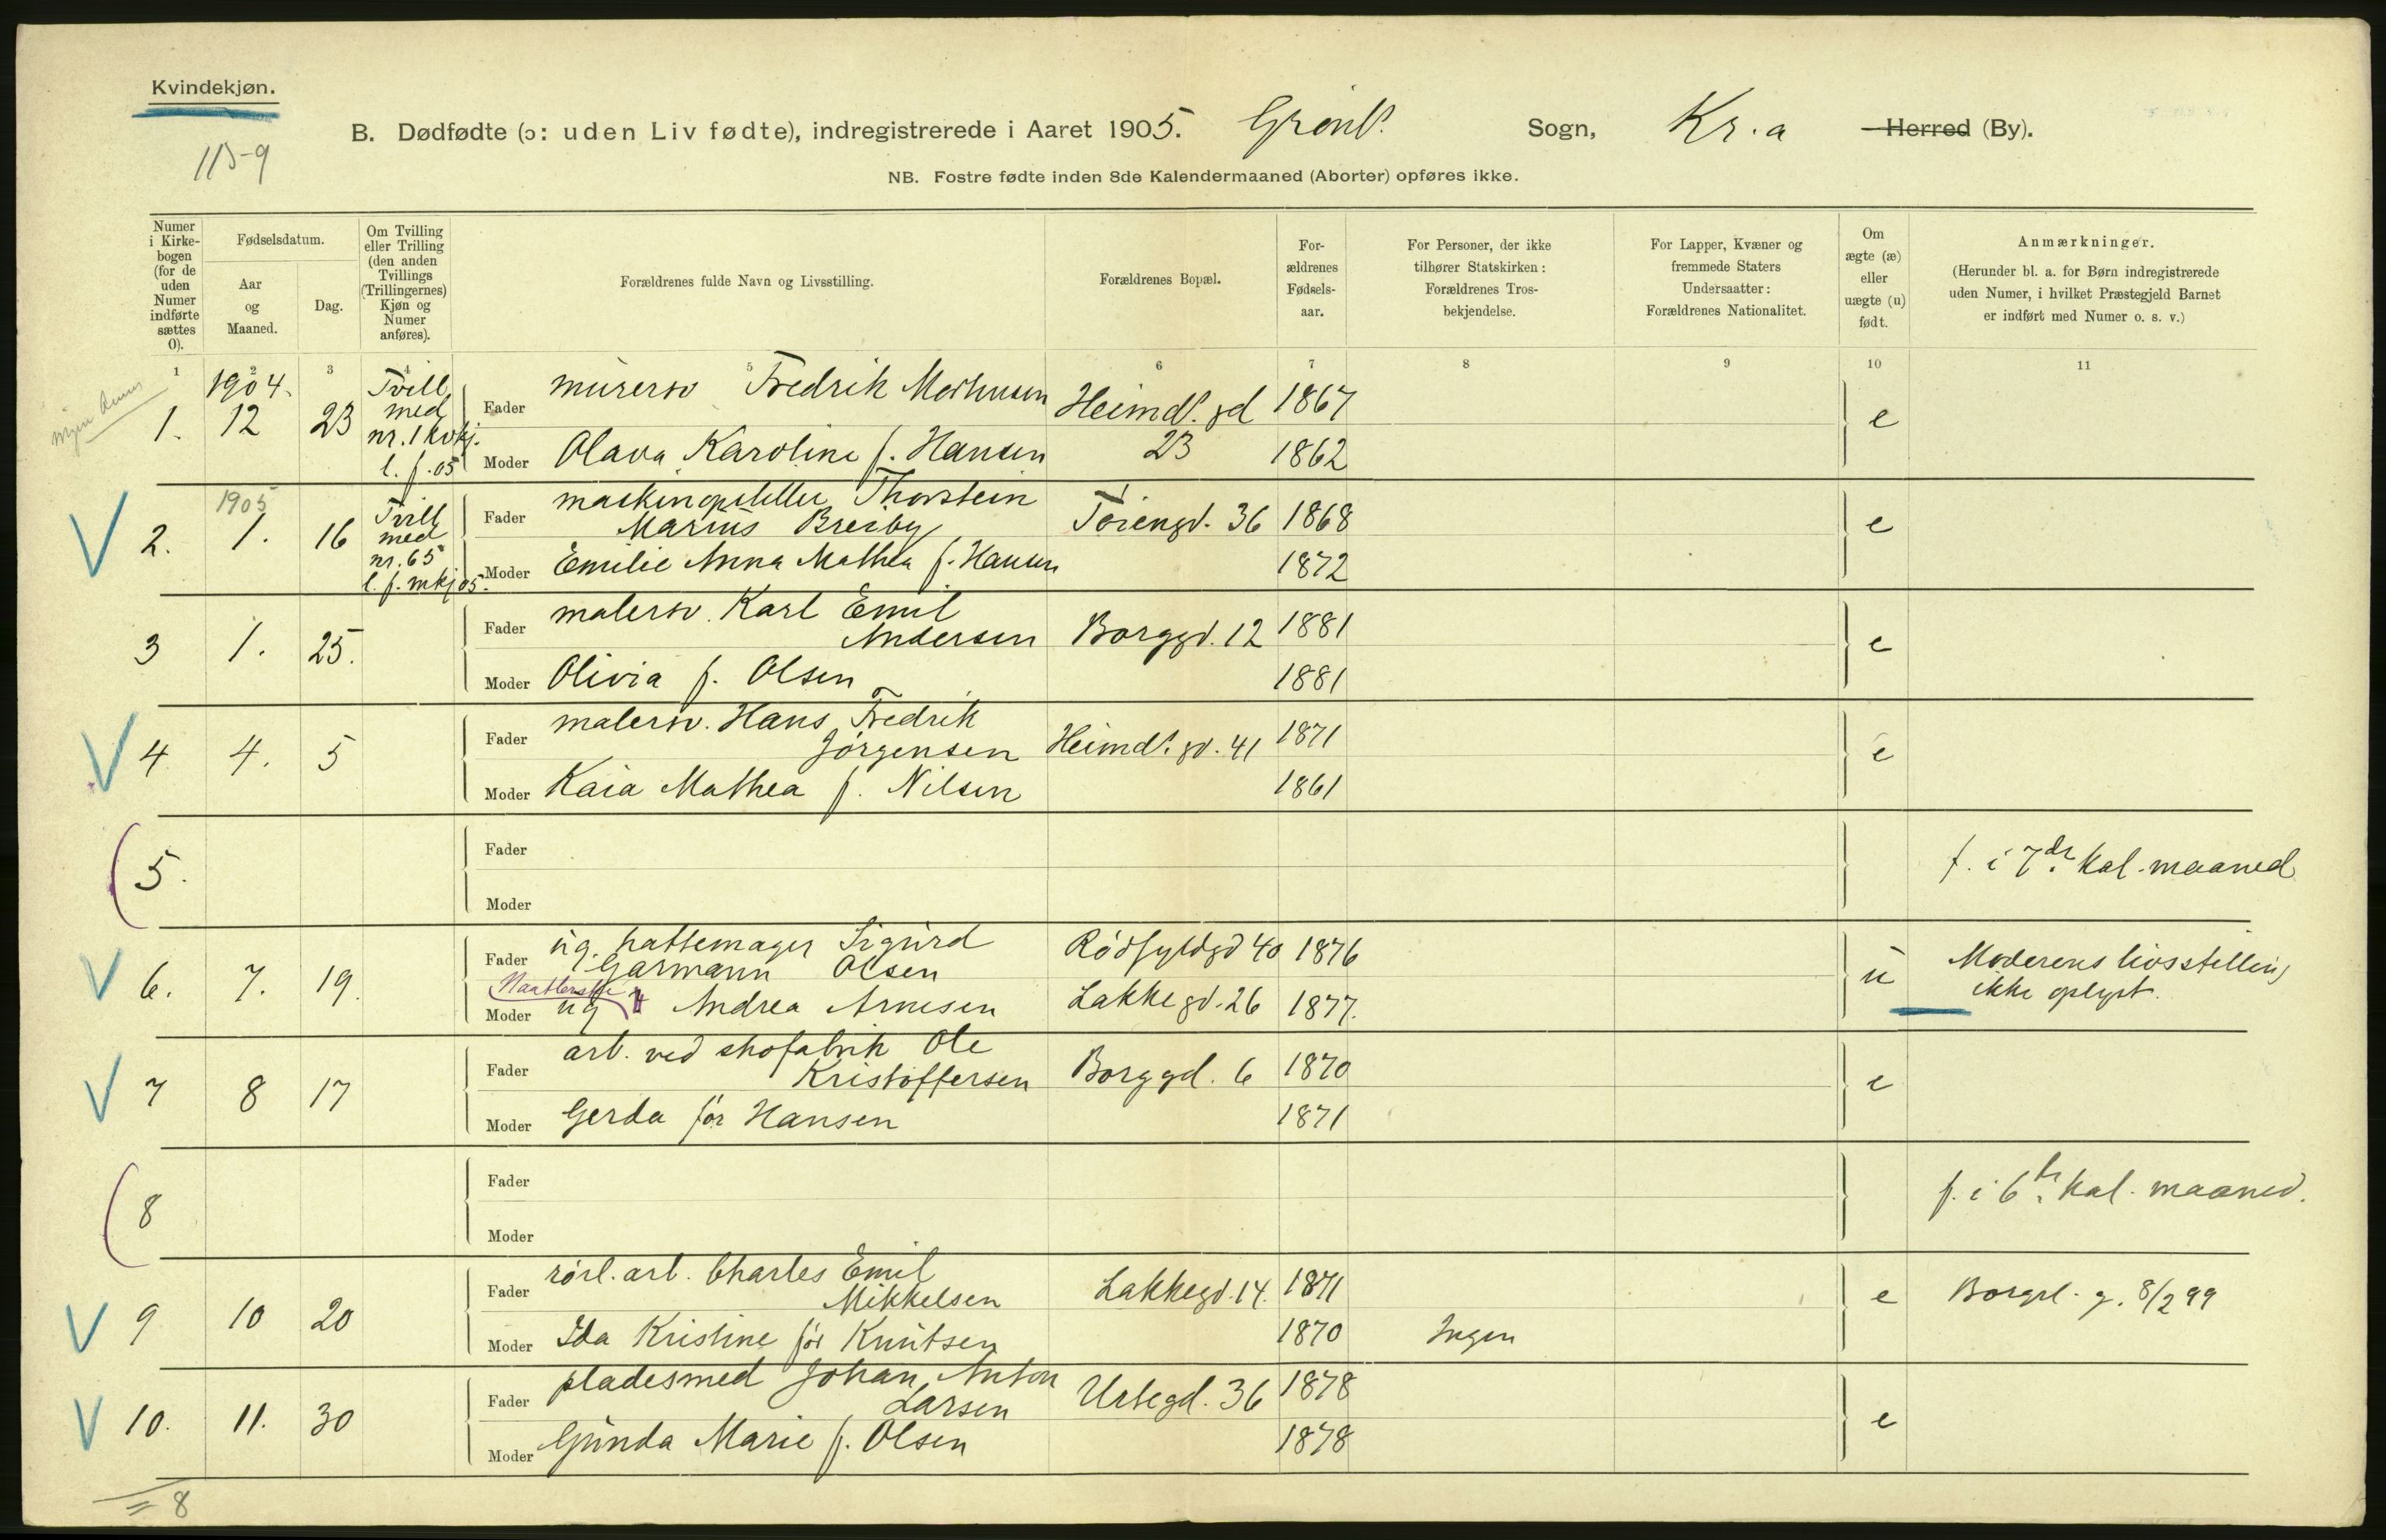 Kvindekjøn.
115-9
B. Dødfødte (ɔ: uden Liv fødte), indregistrerede i Aaret 1905. Grønl. Sogn, Kr.a Herred (By).
NB. Fostre fødte inden 8de Kalendermaaned (Aborter) opføres ikke.
Numer i Kirke-bogen (for de uden Numer indførte sættes 0).
Fødselsdatum.
Aar og Maaned.
Dag.
Om Tvilling eller Trilling (den anden Tvillings (Trillingernes) Kjøn og Numer anføres).
Forældrenes fulde Navn og Livsstilling.
Forældrenes Bopæl.
For-ældrenes Fødsels-aar.
For Personer, der ikke tilhører Statskirken: Forældrenes Tros-bekjendelse.
For Lapper, Kvæner og fremmede Staters Undersaatter: Forældrenes Nationalitet.
Om ægte (æ) eller uægte (u) født.
Anmærkninger.
(Herunder bl. a. for Børn indregistrerede uden Numer, i hvilket Præstegjeld Barnet er indført med Numer o. s. v.)
1 2 3 4 5 6 7 8 9 10 11
1904.
1. 12 23 Tvill med nr. 1 kvkj. l. f. 05
Fader murersv Fredrik Heimdl. gd 23 1867 e
Moder Olava Karoline f. Hansen 1862
1905
2. 1. 16 Tvill med nr. 65 l. f. mkj 05.
Fader maskinopstiller Thorstein
Marius Breiby Tøiengd. 36 1868 e
Moder Emilie Anna Mathea f. Hansen 1872
3 1. 25.
Fader malersv. Karl Emil
Andersen Borggd. 12 1881 e
Moder Olivia f. Olsen 1881
4 4. 5
Fader malersv. Hans Fredrik
Jørgensen Heimdl. gd. 41 1871 e
Moder Kaia Mathea f. Nilsen 1861
5.
Fader
f. i 7de kal. maaned
Moder
6. 7. 19.
Fader ug. hattemager Sigurd
Garmann Olsen Rødfyldgd 40 1876 u
Moderens livsstilling
ikke oplyst.
Moder ug Andrea Arnesen Lakkegd. 26 1877.
7 8 17
Fader arb. ved skofabrik Ole
Kristoffersen Borggd. 6 1870 e
Moder Gerda før Hansen 1871
8
Fader
f. i 6te kal. maaned.
Moder
9 10 20
Fader rørl. arb. Charles Emil
Mikkelsen Lakkegd. 14. 1871 e Borgrl. g. 8/2 99
Moder Ida Kristine før Knutsen 1870 Ingen
10. 11. 30
Fader pladesmed Johan Anton
Larsen Urtegd. 36 1878 e
Moder Gunda Marie f. Olsen 1878
= 8